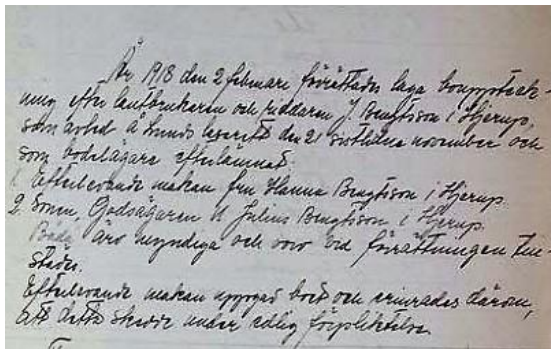 År 1918 den 2 februari förrättades laga bouppteck-
ning efter lantbrukaren och riddaren J. Bengtsson i Hjerup,
som avled å Lunds lasarett den 21 sistlidne november och
som bodelägare efterlämnat:
1. Efterlevande makan fru Hanna Bengtsson i Hjerup.
2. Sonen, Godsägaren N Julius Bengtsson i Hjerup.
Båda äro myndiga och voro vid förrättningen till-
städes.
Efterlevande makan uppgav boet och erinrades därom,
att detta skedde under edlig förpliktelse.